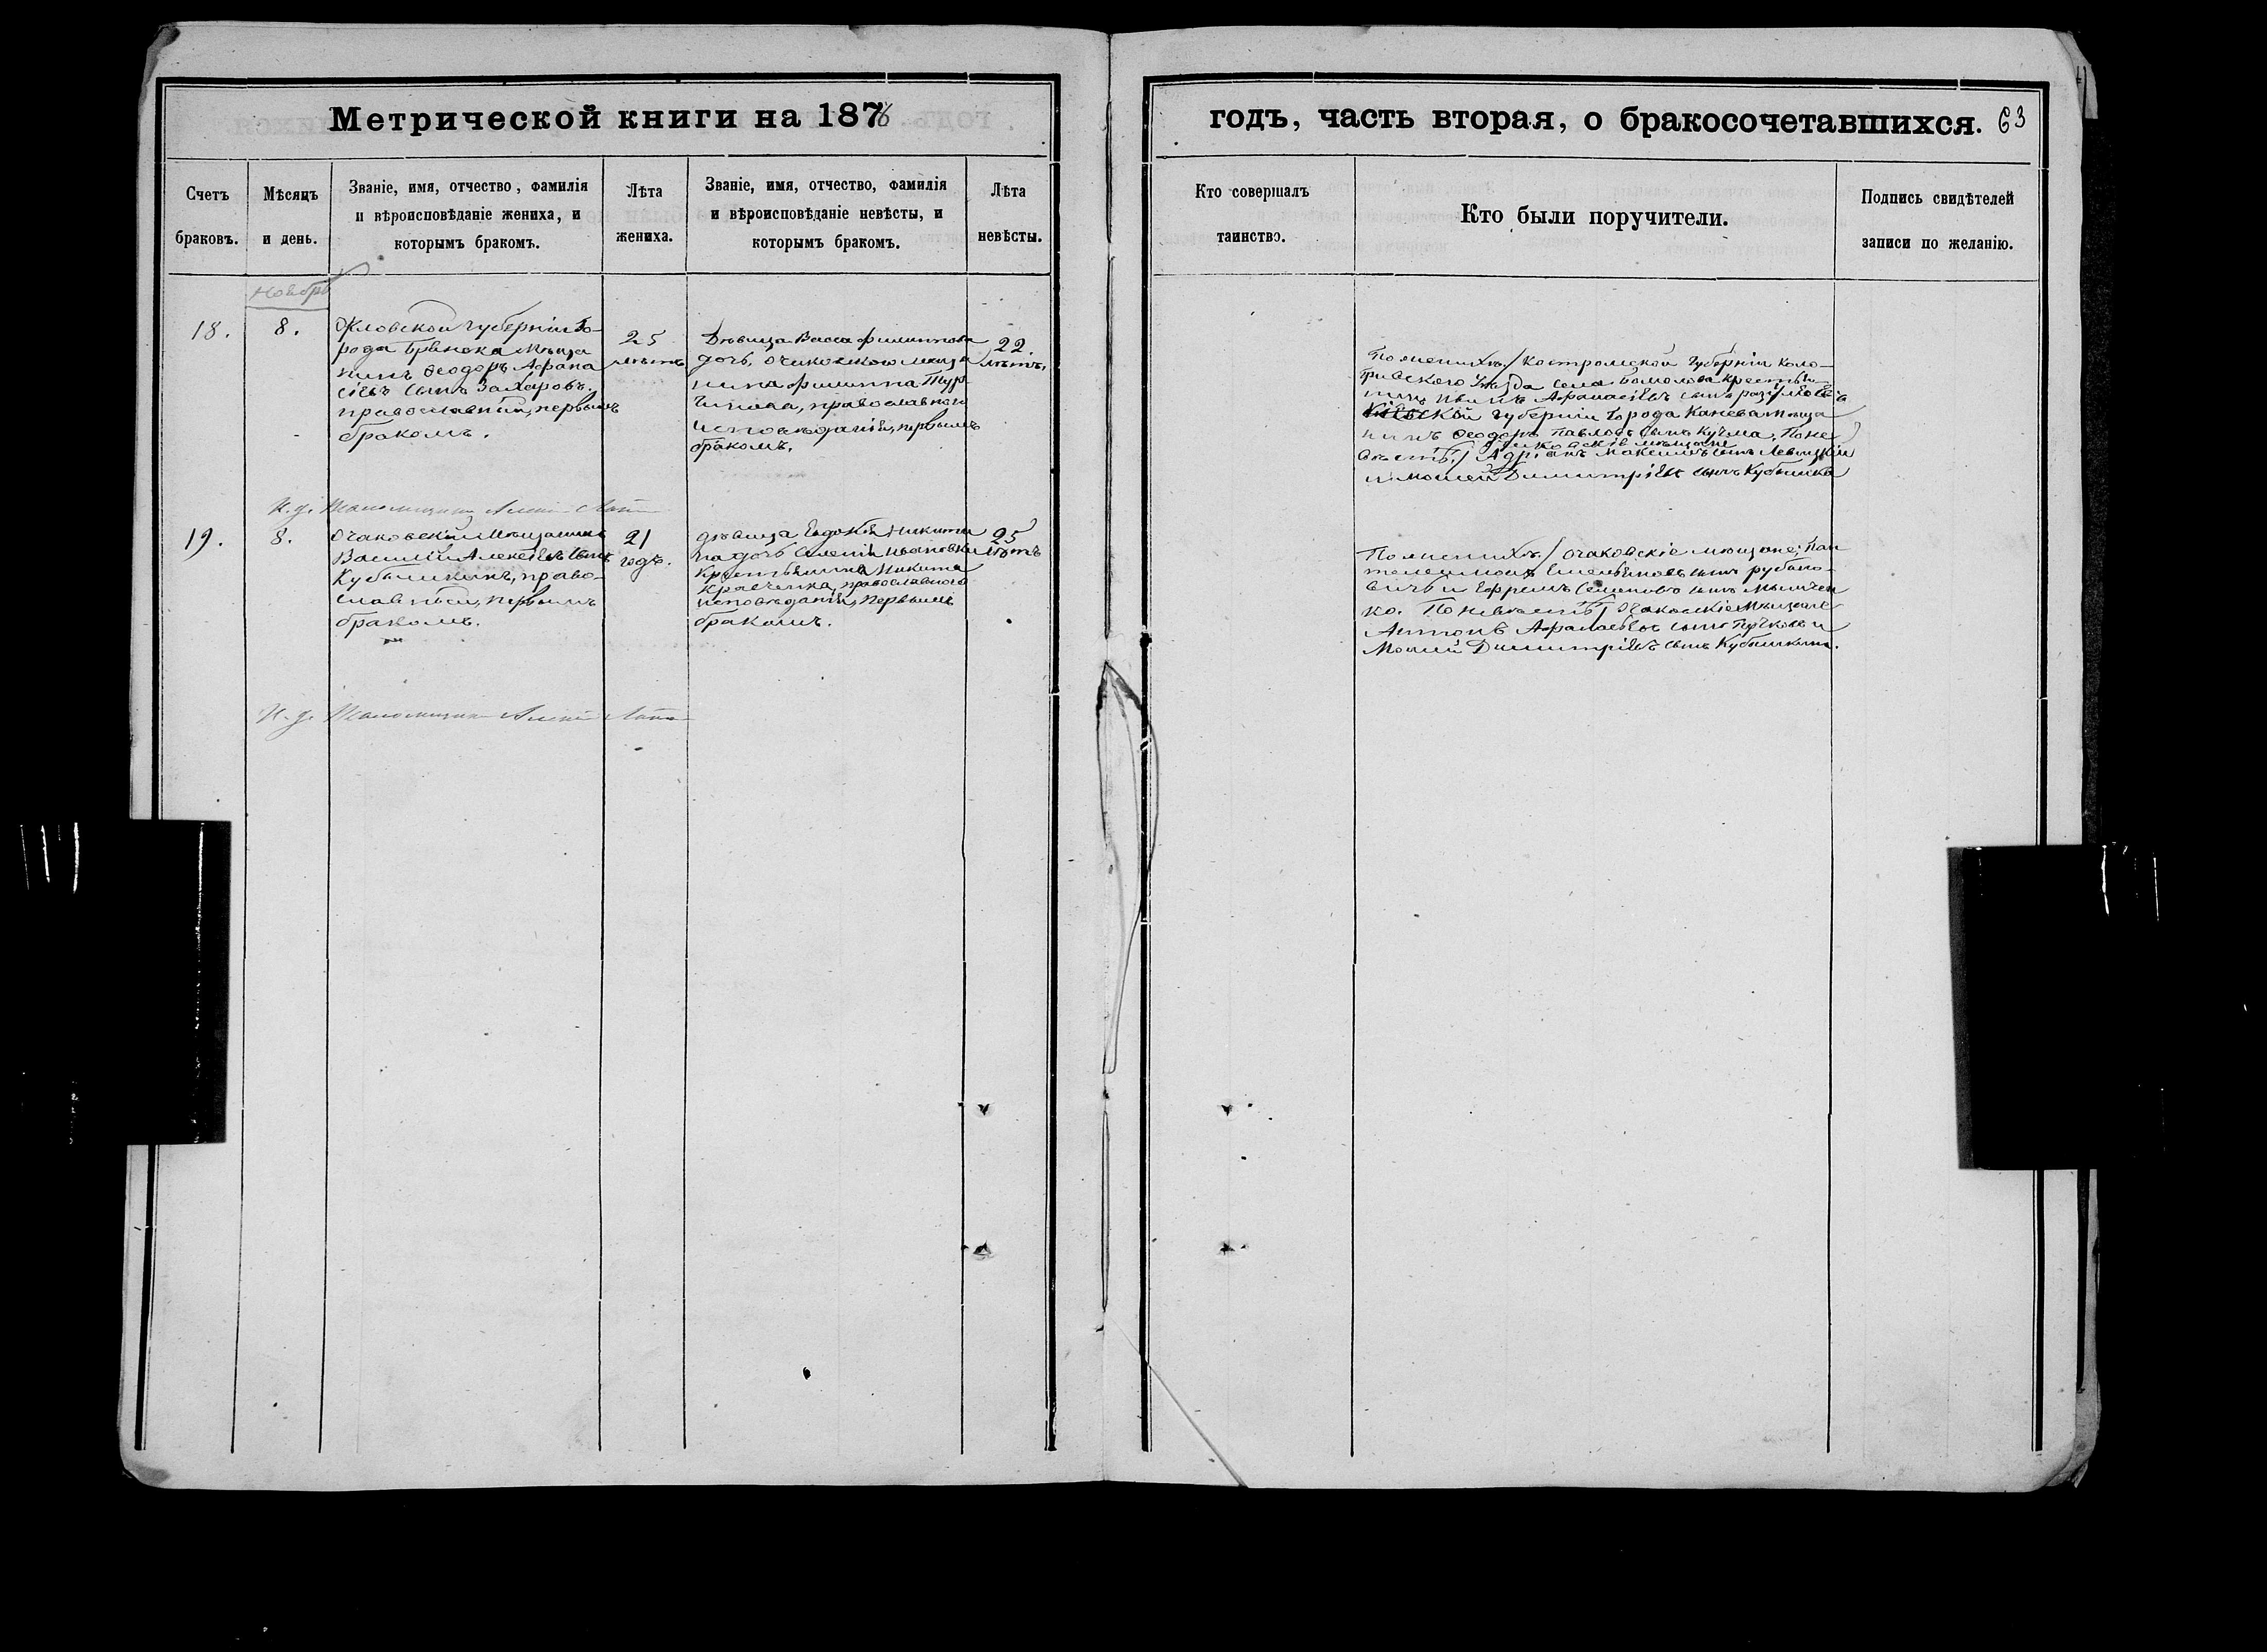 Метрической книги на 1876
годъ, часть вторая, о бракосочетавшихся. 63
Счетъ браковъ.
Мѣсяцъ и день.
Званіе, имя, отчество, фамилія
и вѣроисповѣданіе жениха, и
которымъ бракомъ.
Лѣта
жениха.
Званіе, имя, отчество, фамилія
и вѣроисповѣданіе невѣсты, и
которымъ бракомъ.
Лѣта
невѣсты.
Кто совершалъ
таинство.
Кто были поручители.
Подпись свидѣтелей
записи по желанію.
Ноябрь
18.
8.
Орловской губерніи го-
рода Брянска мѣща
нинъ Ѳеодоръ Афана
сіевъ сынъ Захаровъ.
православный, первымъ
бракомъ.
25
лѣтъ
Дѣвица Васса Филиппова
дочь, очаковскаго мѣща
нина Филиппа Тур
православнаго
исповѣданія, первымъ
бракомъ.
22.
лѣтъ.
По женихѣ / Костромской губерніи Коло-
гривскаго уѣзда села крестья-
нинъ Иванъ Афанасіевъ сынъ
Кіевской губерніи города Канева мѣща
нинъ Ѳеодоръ Павловъ сынъ Кузма, По не
Очаковскіе мѣщане
вѣстѣ / Адріанъ Максимовъ сынъ Левицкій
и Моисей Димитріевъ сынъ
И. д. Псаломщика Алексій
19.
8.
Очаковскій мѣщанинъ
Василій Алексѣевъ сынъ
Кубышкинъ, право-
славный, первымъ
бракомъ.
21
годъ.
дѣвица Евдокія Никити
на дочь селенія Ивановки
Крестьянина Никиты
Кравченка, православнаго
исповѣданія, первымъ
бракомъ.
25
лѣтъ
По женихѣ / очаковскіе мѣщане: Пан
телеимонъ Емельяновъ сынъ рубано-
вичъ и Ефремъ Семеновъ сынъ
ко. По невѣстѣ / Очаковскіе мѣщане
Антонъ Афанасьевъ сынъ и
Моисей Димитріевъ сынъ Кубышкинъ.
И. д. Псаломщика Алексій